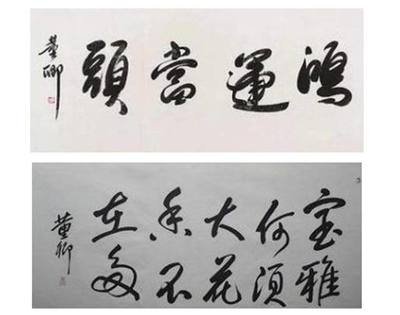 鴻運當頭
董卿
室雅
何須
大花
香不
在多
董卿